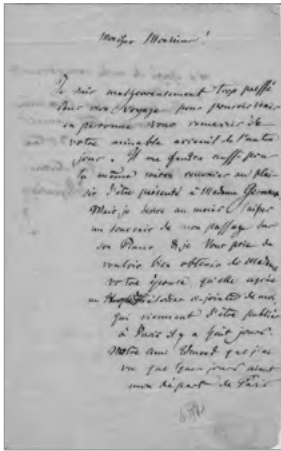 Mon cher Monsieur!
Je suis malheureusement trop pressé
dans mon voyage pour pouvoir
en personne vous remercier de
votre aimable accueil de l'autre
jour. Il me faudra aussi pour
la même raison renoncer au plai-
sir d'être présenté à Madame
Mais je désire au moins laisser
un souvenir de mon passage sur
son Piano & je Vous prie de
vouloir bien obtenir de Madame
votre épouse, qu'elle agrée
de moi,
qui viennent d'être publiés
à Paris il y a huit jours.
Notre ami Edmond que j'ai
vu quelques jours avant
mon départ de Paris